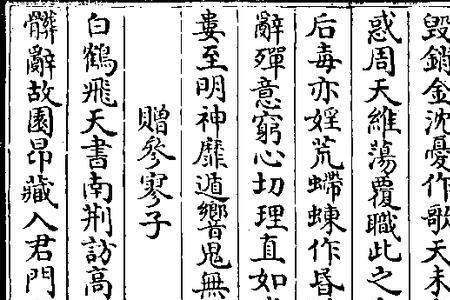 毀銷金沈憂作歌天未
惑周天維蕩覆職此之
后毒亦婬荒螮蝀作昏
辭殫意窮心切理直如
婁至明神靡遁響鬼無
贈參寥子
白鶴飛天書南荊訪高
髒辭故園昂藏入君門